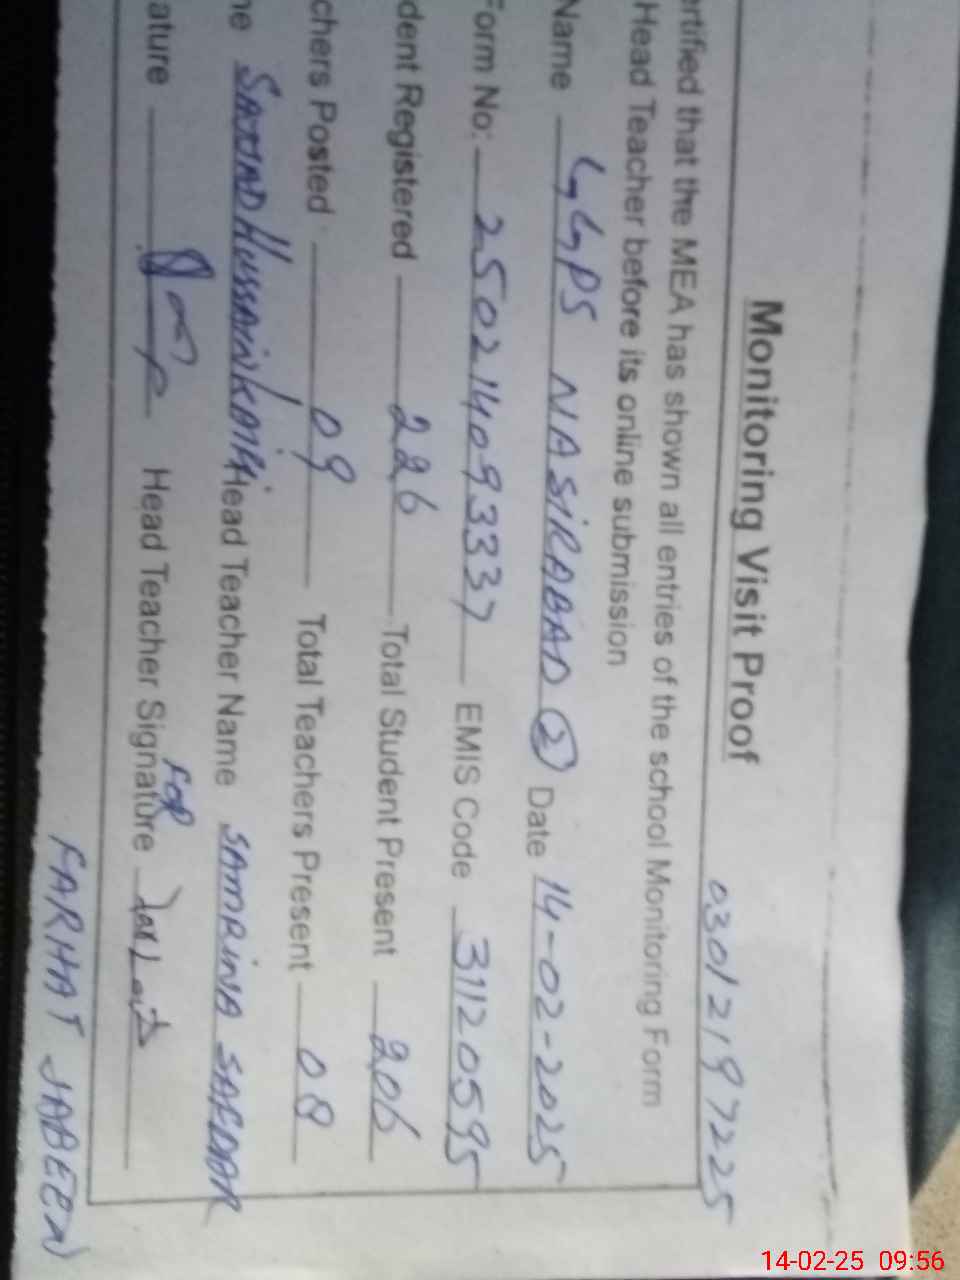 03012197225
Monitoring Visit Proof
ertified that the MEA has shown all entries of the school Monitoring Form
Head Teacher before its online submission
Name GGPS NASIRABAD 2 Date 14-02-2025
Form No: 25021409337 EMIS Code 31120595
dent Registered 226 Total Student Present 206
chers Posted 09 Total Teachers Present 08
ne SAJJAD HUSSAIN KAZMI Head Teacher Name SAMRINA SAFDAR
ature Head Teacher Signature FOR
FARHAT JABEEN
14-02-25 09:56